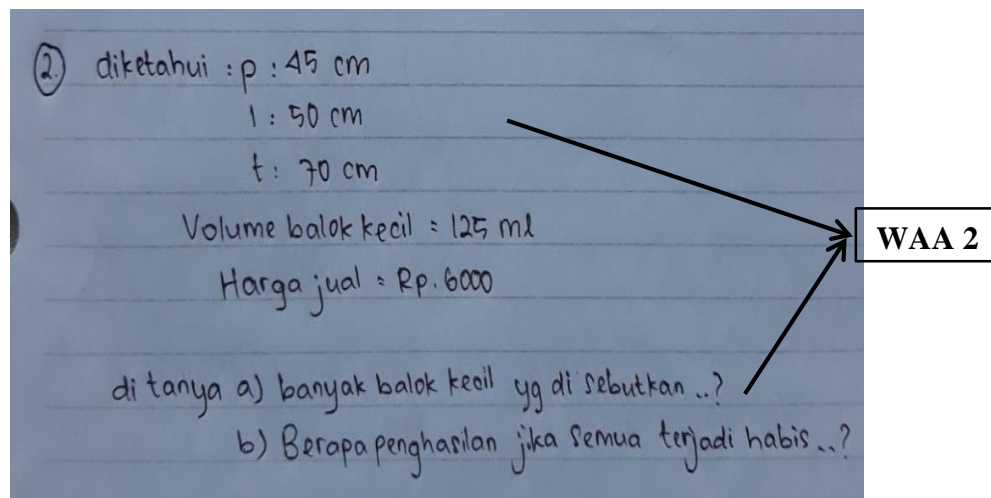 2. diketahui : p : 45 cm
l : 50 cm
t : 70 cm
Volume balok kecil = 125 ml
Harga jual = Rp. 6000
WAA 2
di tanya a) banyak balok kecil yg di sebutkan ..?
b) Berapa penghasilan jika semua terjadi habis ..?